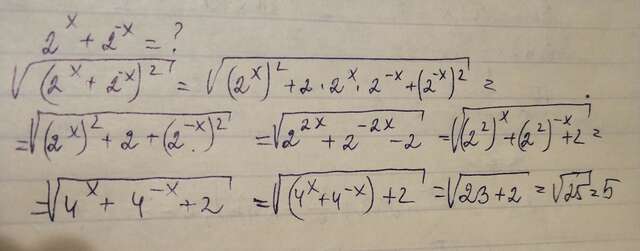 2^x + 2^-x = ?
√((2^x + 2^-x)^2) = √((2^x)^2 + 2 · 2^x · 2^-x + (2^-x)^2) =
= √((2^x)^2 + 2 + (2^-x)^2) = √(2^2x + 2^-2x - 2) = √((2^2)^x + (2^2)^-x + 2) =
= √(4^x + 4^-x + 2) = √((4^x + 4^-x) + 2) = √(23 + 2) = √25 = 5